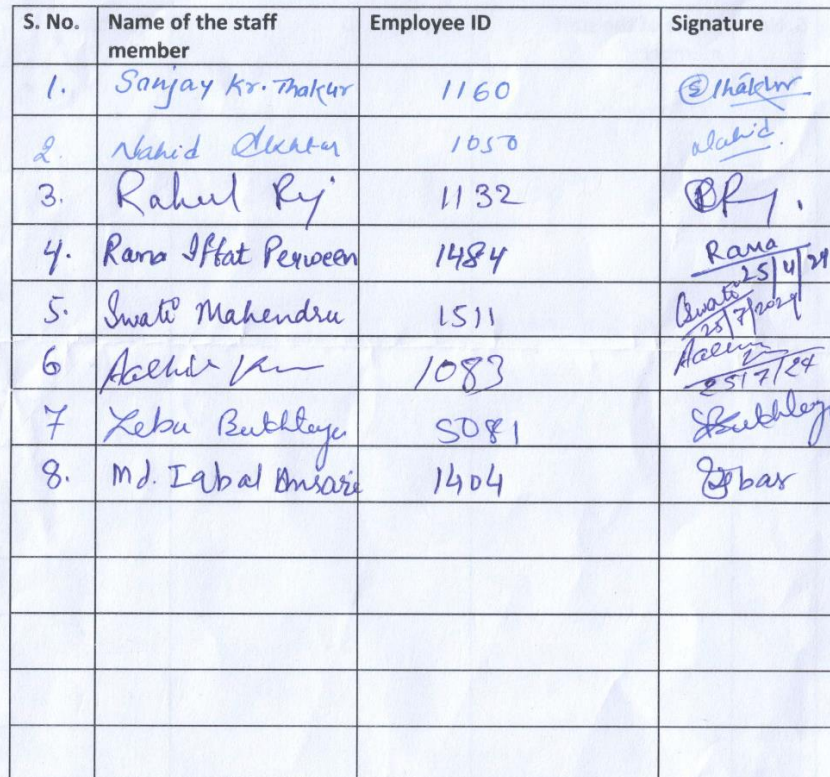 S. No. Name of the staff member Employee ID Signature
1. Sanjay Kr. Thakur 1160 S Thakur
2. Nahid 1050 Nahid
3. Rahul Raj 1132
4. Rana Iffat Perween 1484 Rana 25/4/24
5. Swati Mahendru 1511 Swati 25/7/2024
6 1083 25/7/24
7 Zeba 5081
8. Md. Iqbal Ansari 1404